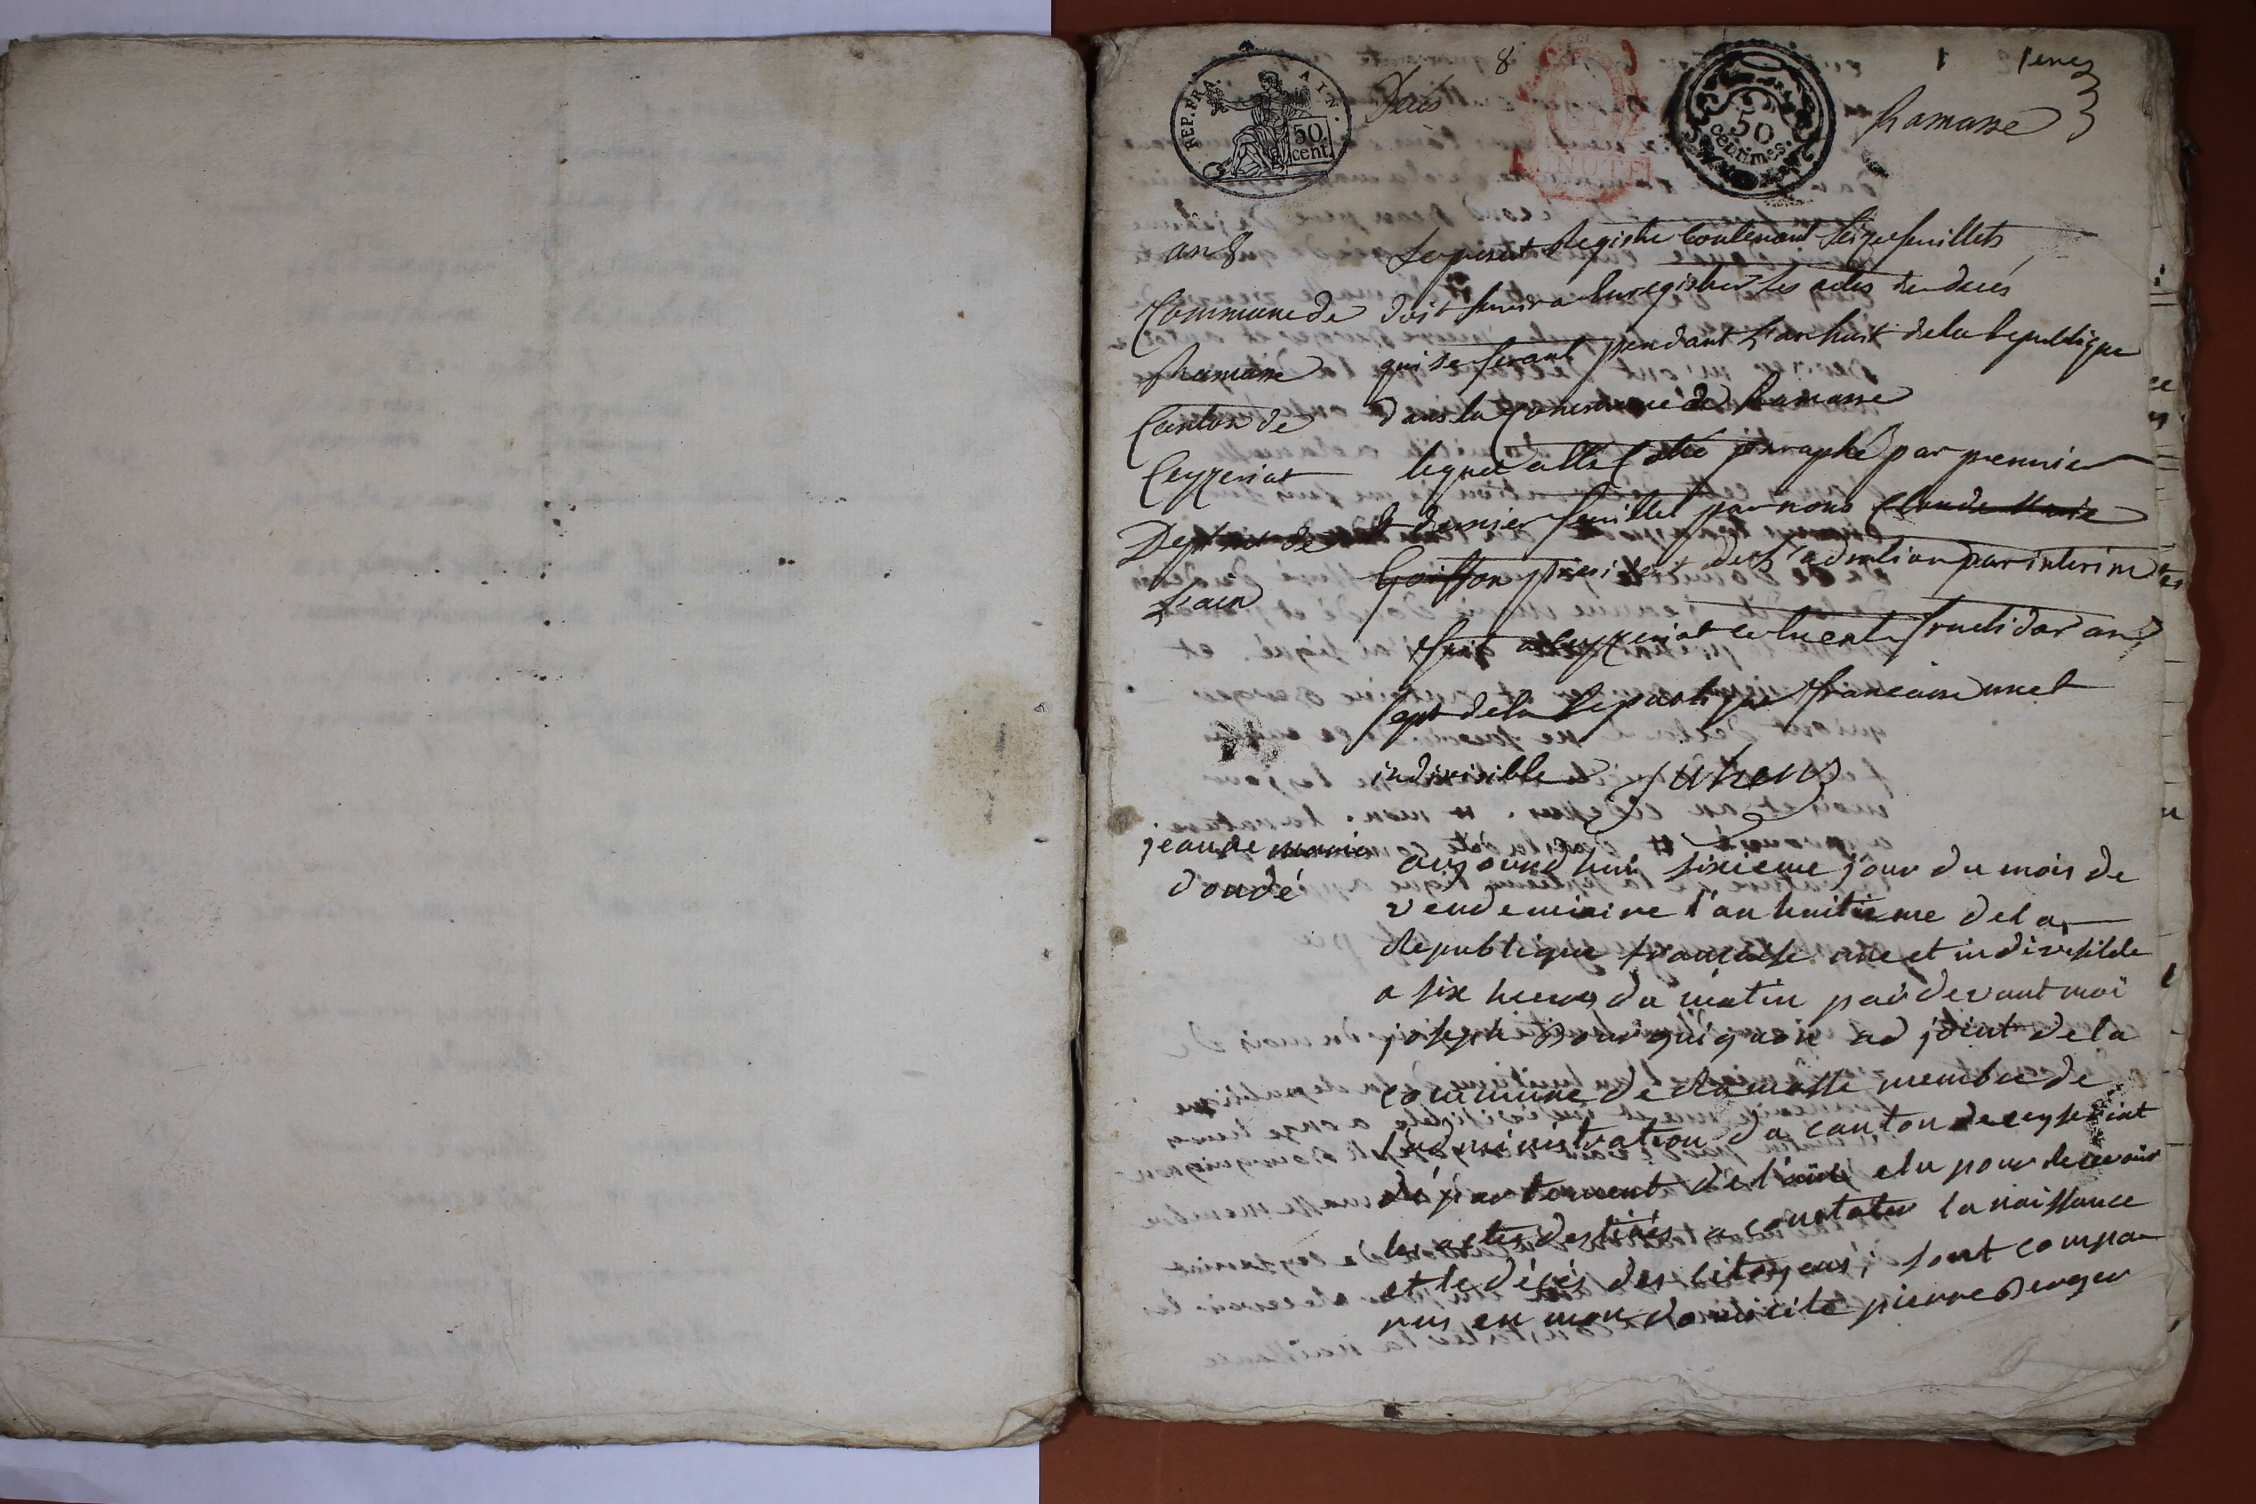 8
1 1er
REP. FRA. AIN.
50 cent.
50 centimes.
Décès
Ramasse
an 8
Commune de
Ramasse
Canton de
Ceyzeriat
Deptmt de
L'ain
Le present Registre Contenant seize feuillets
doit servir a Enregistrer les actes de decès
qui se feront pendant L'an huit de la Republique
dans la Commune de Ramasse
lequel a été Cotté paraphé par premier
et dernier feuillet par nous Claude Marie
Goiffon president de L'admtion par interim
fait a Ceyzeriat le fructidor an
sept de la Republique francaise une et
indivisible
jeanne marie
dondé
aujourd'hui sixieme jour du mois de
vendemiaire l'an huitieme de la
Republique francaise une et indivisible
a six heures du matin par devant moi
joseph Bourguignon adjoint de la
commune de Ramasse membre de
l'administration du canton de ceyseriat
département de l'ain elu pour recevoir
les actes destinés a constater la naissance
et le décès des citoyens, sont compa
rus en mon domicile pierre Berger